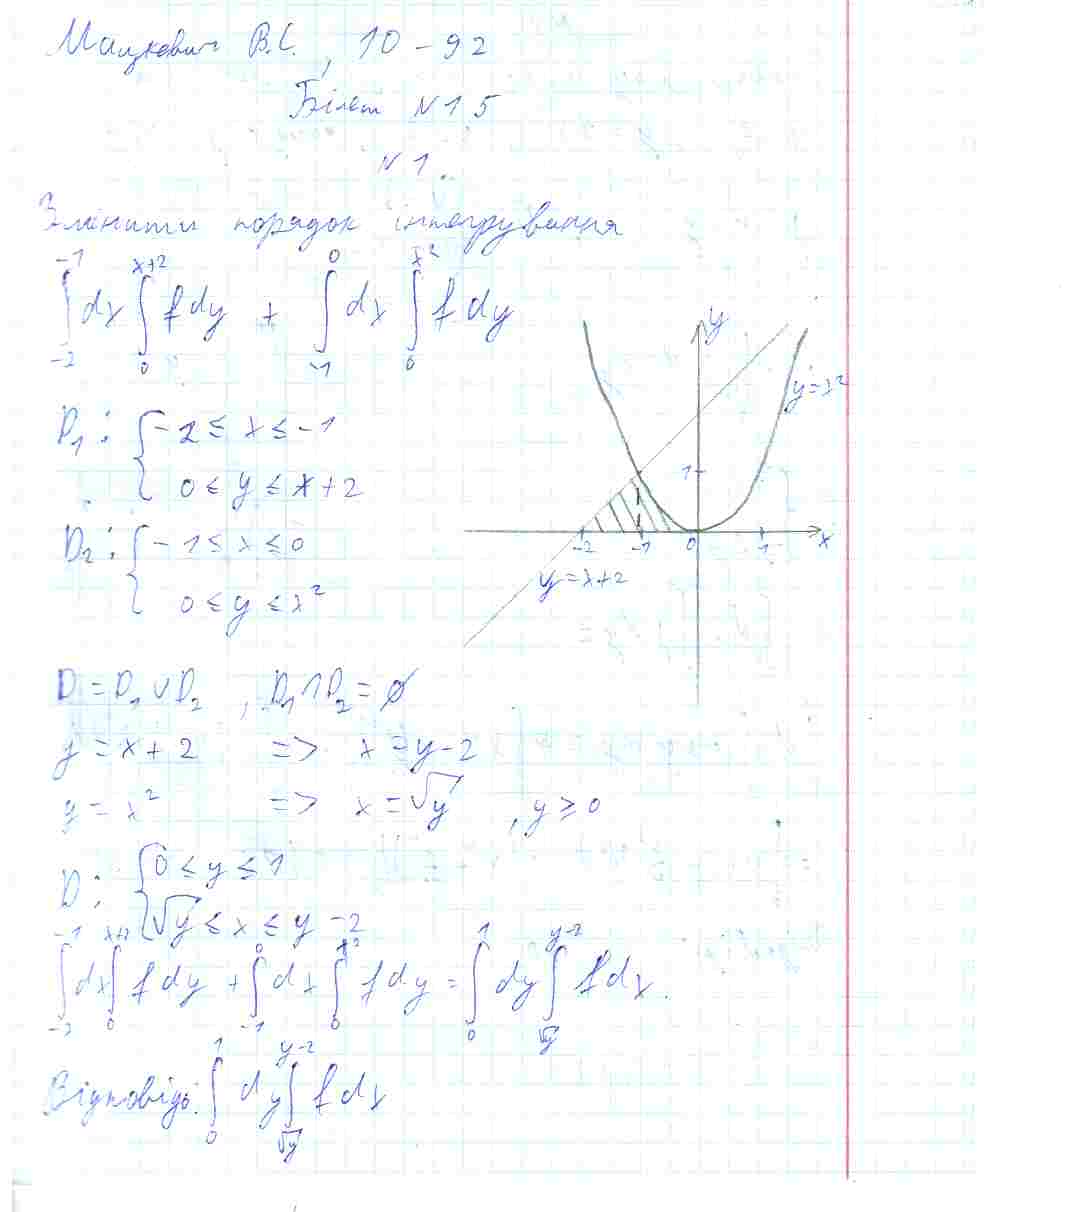 Мацкевич В.С., ІО-92
Білет №15
№1.
Змінити порядок інтегрування
∫_{-2}^{-1} dx ∫_{0}^{x+2} f dy + ∫_{-1}^{0} dx ∫_{0}^{x²} f dy
D₁: { -2 ≤ x ≤ -1
0 ≤ y ≤ x+2
D₂: { -1 ≤ x ≤ 0
0 ≤ y ≤ x²
y
y=x²
1
-2 -1 0 1 x
y=x+2
D = D₁ ∪ D₂ , D₁ ∩ D₂ = ∅
y = x + 2 => x = y-2
y = x² => x = √y , y ≥ 0
D: { 0 ≤ y ≤ 1
√y ≤ x ≤ y - 2
∫_{-2}^{-1} dx ∫_{0}^{x+2} f dy + ∫_{-1}^{0} dx ∫_{0}^{x²} f dy = ∫_{0}^{1} dy ∫_{√y}^{y-2} f dx.
Відповідь: ∫_{0}^{1} dy ∫_{√y}^{y-2} f dx